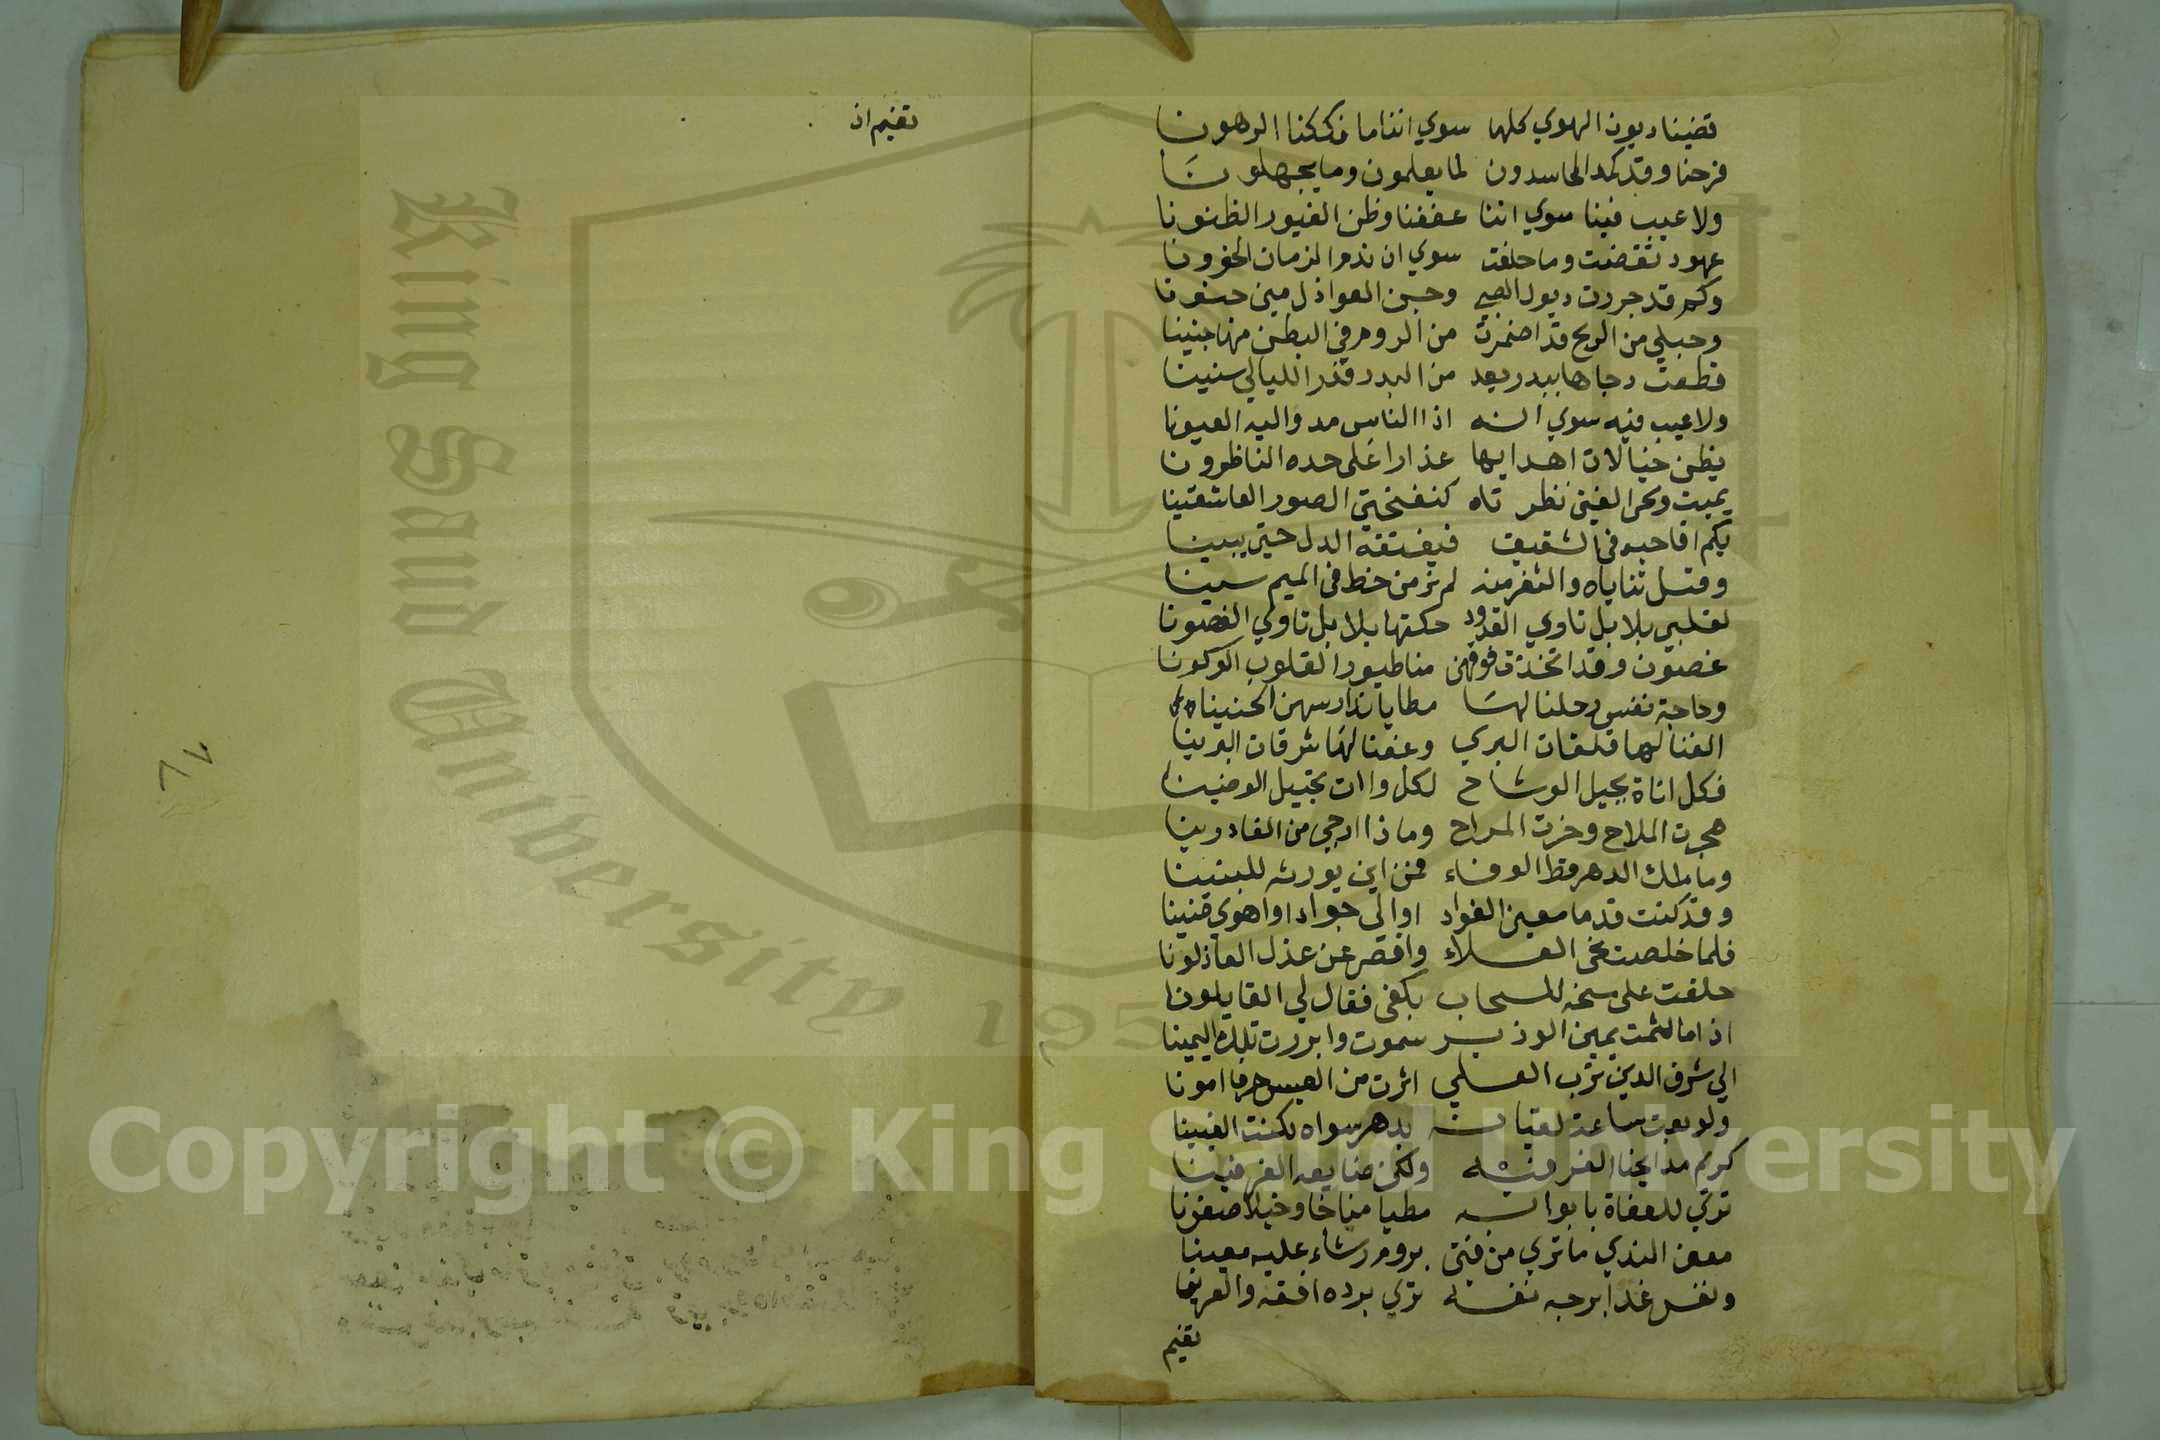 قضينا ديون الهوي كلها سوي اننا ما فككنا الرهونا
فرحنا وقد كمد الحاسدون لما يعلمون وما يجهلونا
ولا عيب فينا سوي اننا عففنا وظن الغيور الظنونا
عهود تقضت وما حلفت سوي ان نذم الزمان الخؤونا
وكم قد جررت ذيول الصبي وحبن العواذل مين حنونا
وحبلي من الريح قد اضمرت من الروم في البطن منها جنينا
قطعت دجاها ببدر يعد من البدر قدر الليالي سنينا
ولا عيب فيه سوي انه اذا الناس مدوا اليه العيونا
يظن خيالات اهدابها عذارا علي خده الناظرونا
يميت ويحي الفتي نظرتاه كنفختي الصور العاشقينا
يكم اقاحيه في الشقيق فيفتقه الدل حتي يبينا
وقبل ثناياه والثغر منه لم نر من خط في الميم سينا
لقلبي بلابل تاوي القدود حكتها بلابل تاوي الغصونا
غصون وقد اتخذت فوقهن منا طيور القلوب الوكونا
وحاجة نفس رحلنا لها مطايا ندارسهن الحنينا
الفنا لها قلقات البري وعفنا لها شرقات البرينا
فكل اناة يجيل الوشاح لكل وات تجيل الوضينا
هجرت الملاح وخرت المراح وما ذا ارجي من الغادرينا
وما ملك الدهر قط الوفاء فمن اين يورثه للبنينا
وقد كنت قدما معين الفواد اوالي جوادا واهوي ضنينا
فلما خلصت نحي العلاء واقصر عن عذل العاذلونا
حلفت علي سحه للسحاب بكفي فقال لي القايلونا
اذا ما لثمت يمين الوزير سموت وابررت تلك اليمينا
الي شرف الدين ترب العلي اثرت من العيس حرفا امونا
ولو بعت ساعة لقيانه بدهر سواه لكنت الغبينا
كريم مدايحنا الغر فيه ولكن صنايعه الغر فينا
تري للعفاة بابوابه مطيا مناخا وخيلا صفونا
معين الندي ما تري من فتي يروم رشاء عليه معينا
ونفس غدا برجه نفسه تري برده افقه والعرينا
تقيم
تقيم اذ
٨٧
King Saud University
1957
Copyright © King Saud University